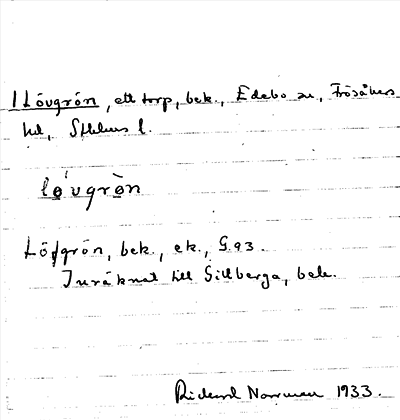 1 Lövgrön, ett torp, bek., Edebo sn, Frösåkers
hd, Sthlms l.
lǿvgrø̀n
Löfgrön, bek., ek., G.93.
Inräknat till Gillberga, bek.
Rickard Norrman 1933.